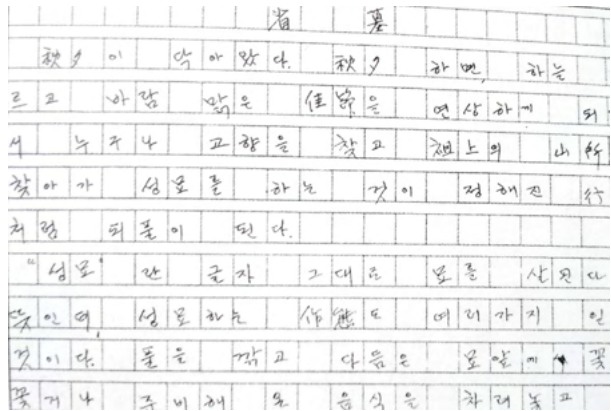 省墓
秋夕이 닥아 왔다. 秋夕 하면, 하늘
르고 바람 맑은 佳節을 연상하게 되
서 누구나 고향을 찾고 祖上의 山所
찾아가 성묘를 하는 것이 정해진 行
처럼 되풀이 된다.
"성묘"란 글자 그대로 묘를 살핀다
뜻인데, 성묘하는 作態도 여러가지 일
것이다. 풀을 깎고 다음은 묘앞에 꽃
꽃거나 준비해 온 음식을 차려놓고